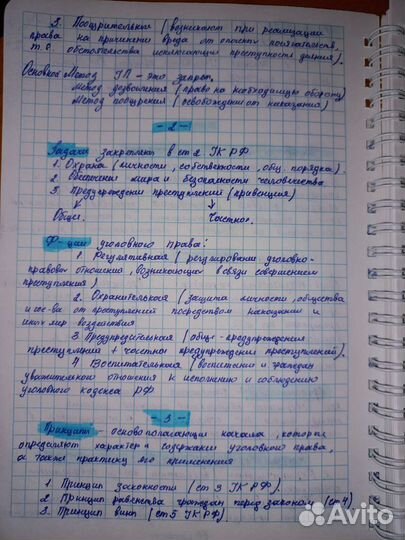 3. Поощрительный (возникают при реализации
права на причинение вреда от опасных посягательств,
т.е. обстоятельства исключающие преступность деяния).
Основной Метод УП - это запрет.
Метод дозволения (право на необходимую оборону)
Метод поощрения (освобождение от наказания)
- 2 -
Задачи закреплены в ст 2 УК РФ
1. Охрана (личности, собственности, общ. порядка).
2. Обеспечение мира и безопасности человечества
3. Предупреждение преступлений (превенция)
Общие. Частное.
Ф-ции уголовного права:
1. Регулятивная (регулирование уголовно-
правовых отношений, возникающих в связи совершением
преступления)
2. Охранительная (защита личности, общества
и гос-ва от преступлений посредством наказания и
иных мер воздействия
3. Предупредительная (общ - предупреждения
преступлений + частное предупреждение преступлений).
4. Воспитательная (воспитание граждан
уважительного отношения к исполнению и соблюдению
уголовного кодекса РФ
- 3 -
Принципы - основополагающие начала, которые
определяют характер и содержание уголовного права,
а также практику его применения
1. Принцип законности (ст 3 УК РФ).
2 Принцип равенства граждан перед законом (ст 4)
3. Принцип вины (ст 5 УК РФ).
Avito